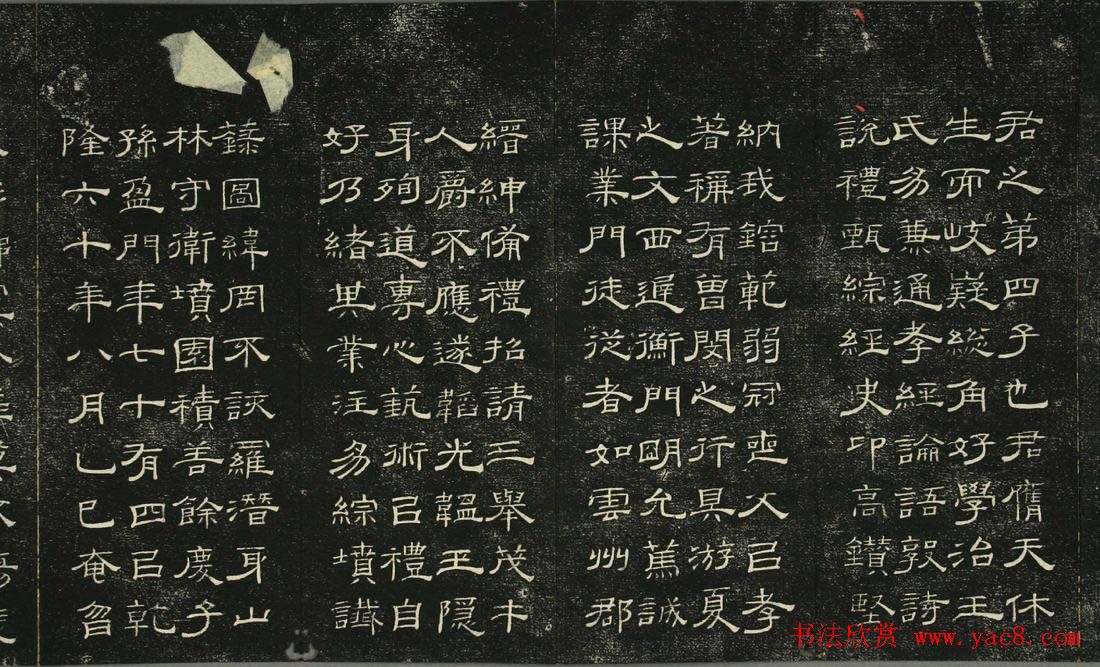 君之弟四子也君膺天休
生而岐嶷總角好學治王
氏易兼通孝經論語敦詩
說禮甄綜經史卬高鑽堅
納我鎔範弱冠喪父㠯孝
著稱有曾閔之行具游夏
之文西遲衡門朙允篤誠
課業門徒從者如雲州郡
縉紳備禮招請三舉茂才
人爵不應遂韜光韞玉隱
身殉道專心埶術㠯禮自
好乃緒其業注易綜墳讖
籙圖緯罔不該羅潛身山
林守衛墳園積善餘慶子
孫盈門年七十有四㠯乾
隆六十年八月己巳奄曶
书法欣赏 www.yac8.com